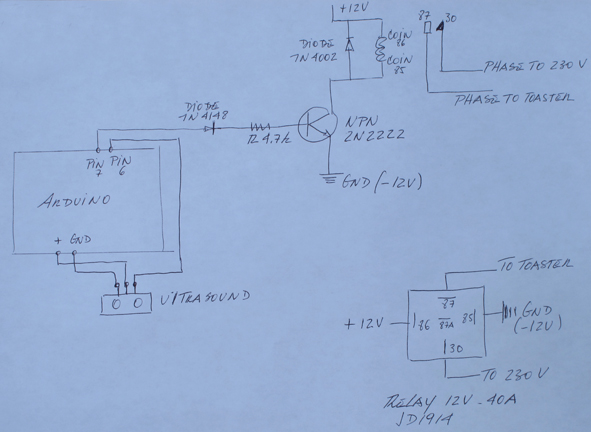 +12V
DIODE
1N4002
COIN
86
COIN
85
87
30
PHASE TO 230 V
PHASE TO TOASTER
DIODE
1N4148
R 4.7k
NPN
2N2222
GND (-12V)
PIN
7
PIN
6
ARDUINO
+ GND
ULTRASOUND
TO TOASTER
87
+12V
86
87A
85
GND
(-12V)
30
TO 230 V
RELAY 12V - 40A
JD1914